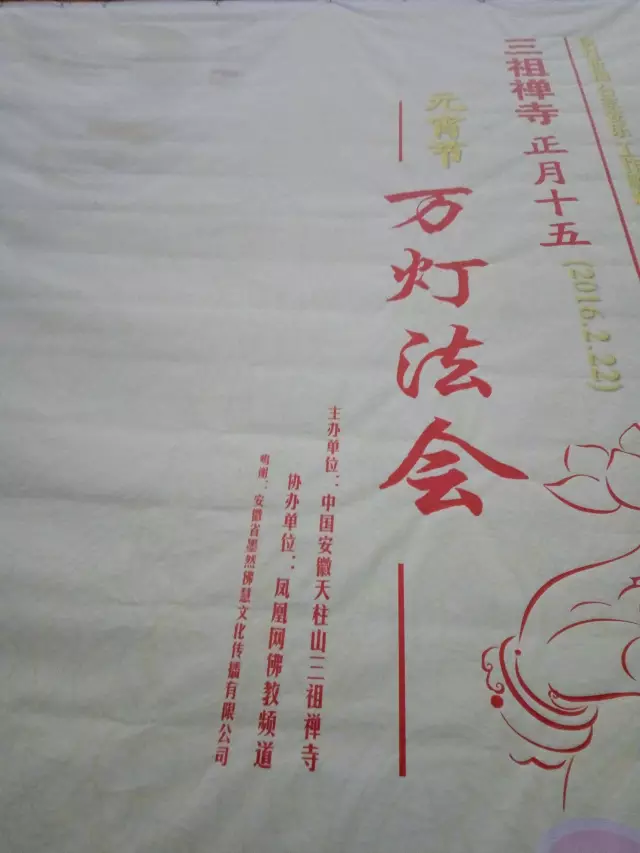 三祖禅寺 正月十五
(2016.2.22)
元宵节
万灯法会
主办单位：中国安徽天柱山三祖禅寺
协办单位：凤凰网佛教频道
鸣谢：安徽省墨然佛慧文化传播有限公司